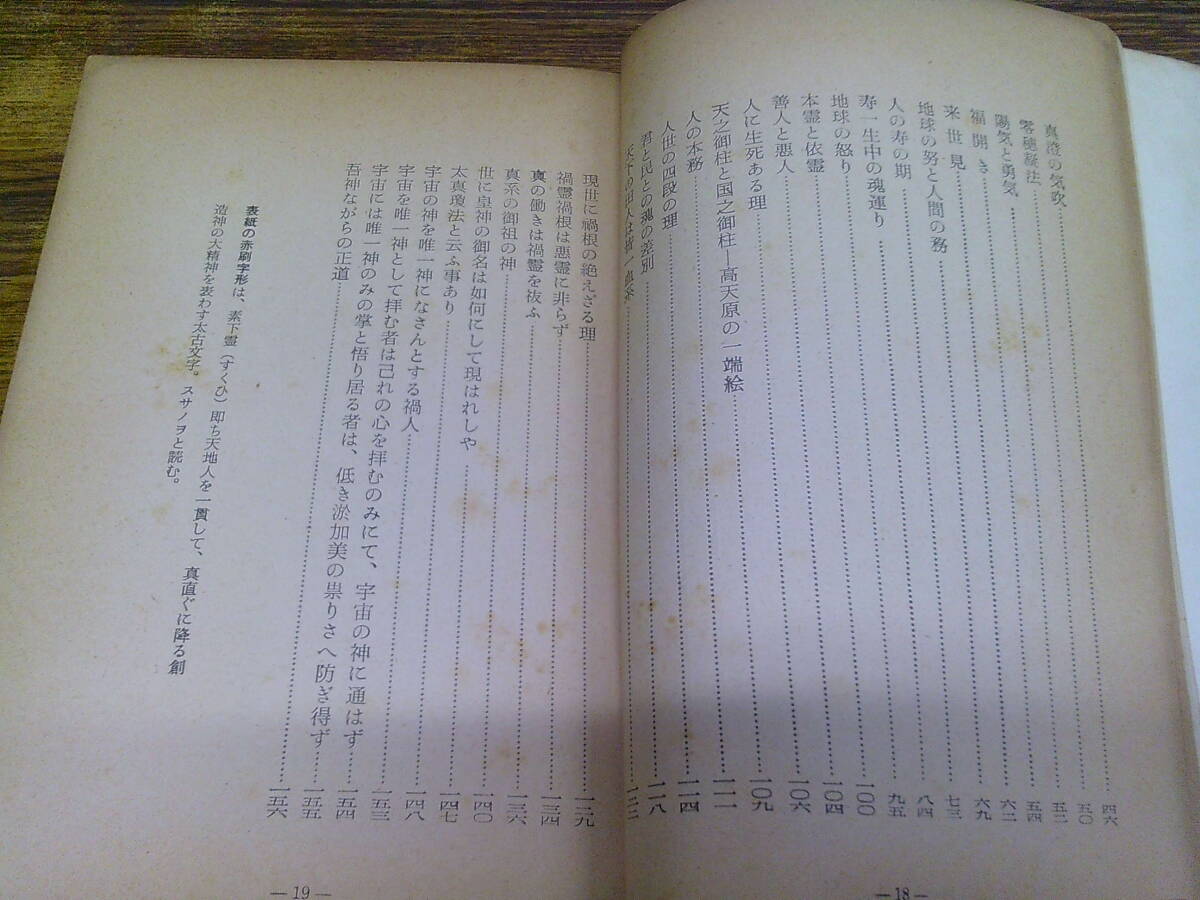 真澄の気吹……四六
零穂経法……五〇
陽気と勇気……五二
福開き……五四
来世見……六二
地球の努と人間の務……六九
人の寿の期……七三
寿一生中の魂運り……八四
地球の怒り……九五
本霊と依霊……一〇〇
善人と悪人……一〇四
人に生死ある理……一〇六
天之御柱と国之御柱―高天原の一端絵……一〇九
人の本務……一一一
人世の四段の理……一一四
君と民との魂の差別……一一八
天下の人は皆一血系……一二二
―18―
現世に禍根の絶えざる理……一二九
禍霊禍根は悪霊に非らず……一三四
真の働きは禍霊を抜ふ……一三六
真系の御祖の神……一四〇
世に皇神の御名は如何にして現はれしや……一四七
太真瓊法と云ふ事あり……一四八
宇宙の神を唯一神になさんとする禍人……一五三
宇宙を唯一神として拝む者は己れの心を拝むのみにて、宇宙の神に通はず……一五四
宇宙には唯一神のみの掌と悟り居る者は、低き淤加美の祟りさへ防ぎ得ず……一五五
吾神ながらの正道……一五六
表紙の赤刷字形は、素下霊（すくひ）即ち天地人を一貫して、真直ぐに降る創
造神の大精神を表わす太古文字。スサノヲと読む。
―19―